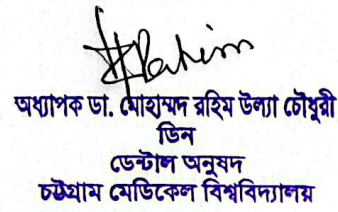 Rahim
অধ্যাপক ডা. মোহাম্মদ রহিম উল্যা চৌধুরী
ডিন
ডেন্টাল অনুষদ
চট্টগ্রাম মেডিকেল বিশ্ববিদ্যালয়